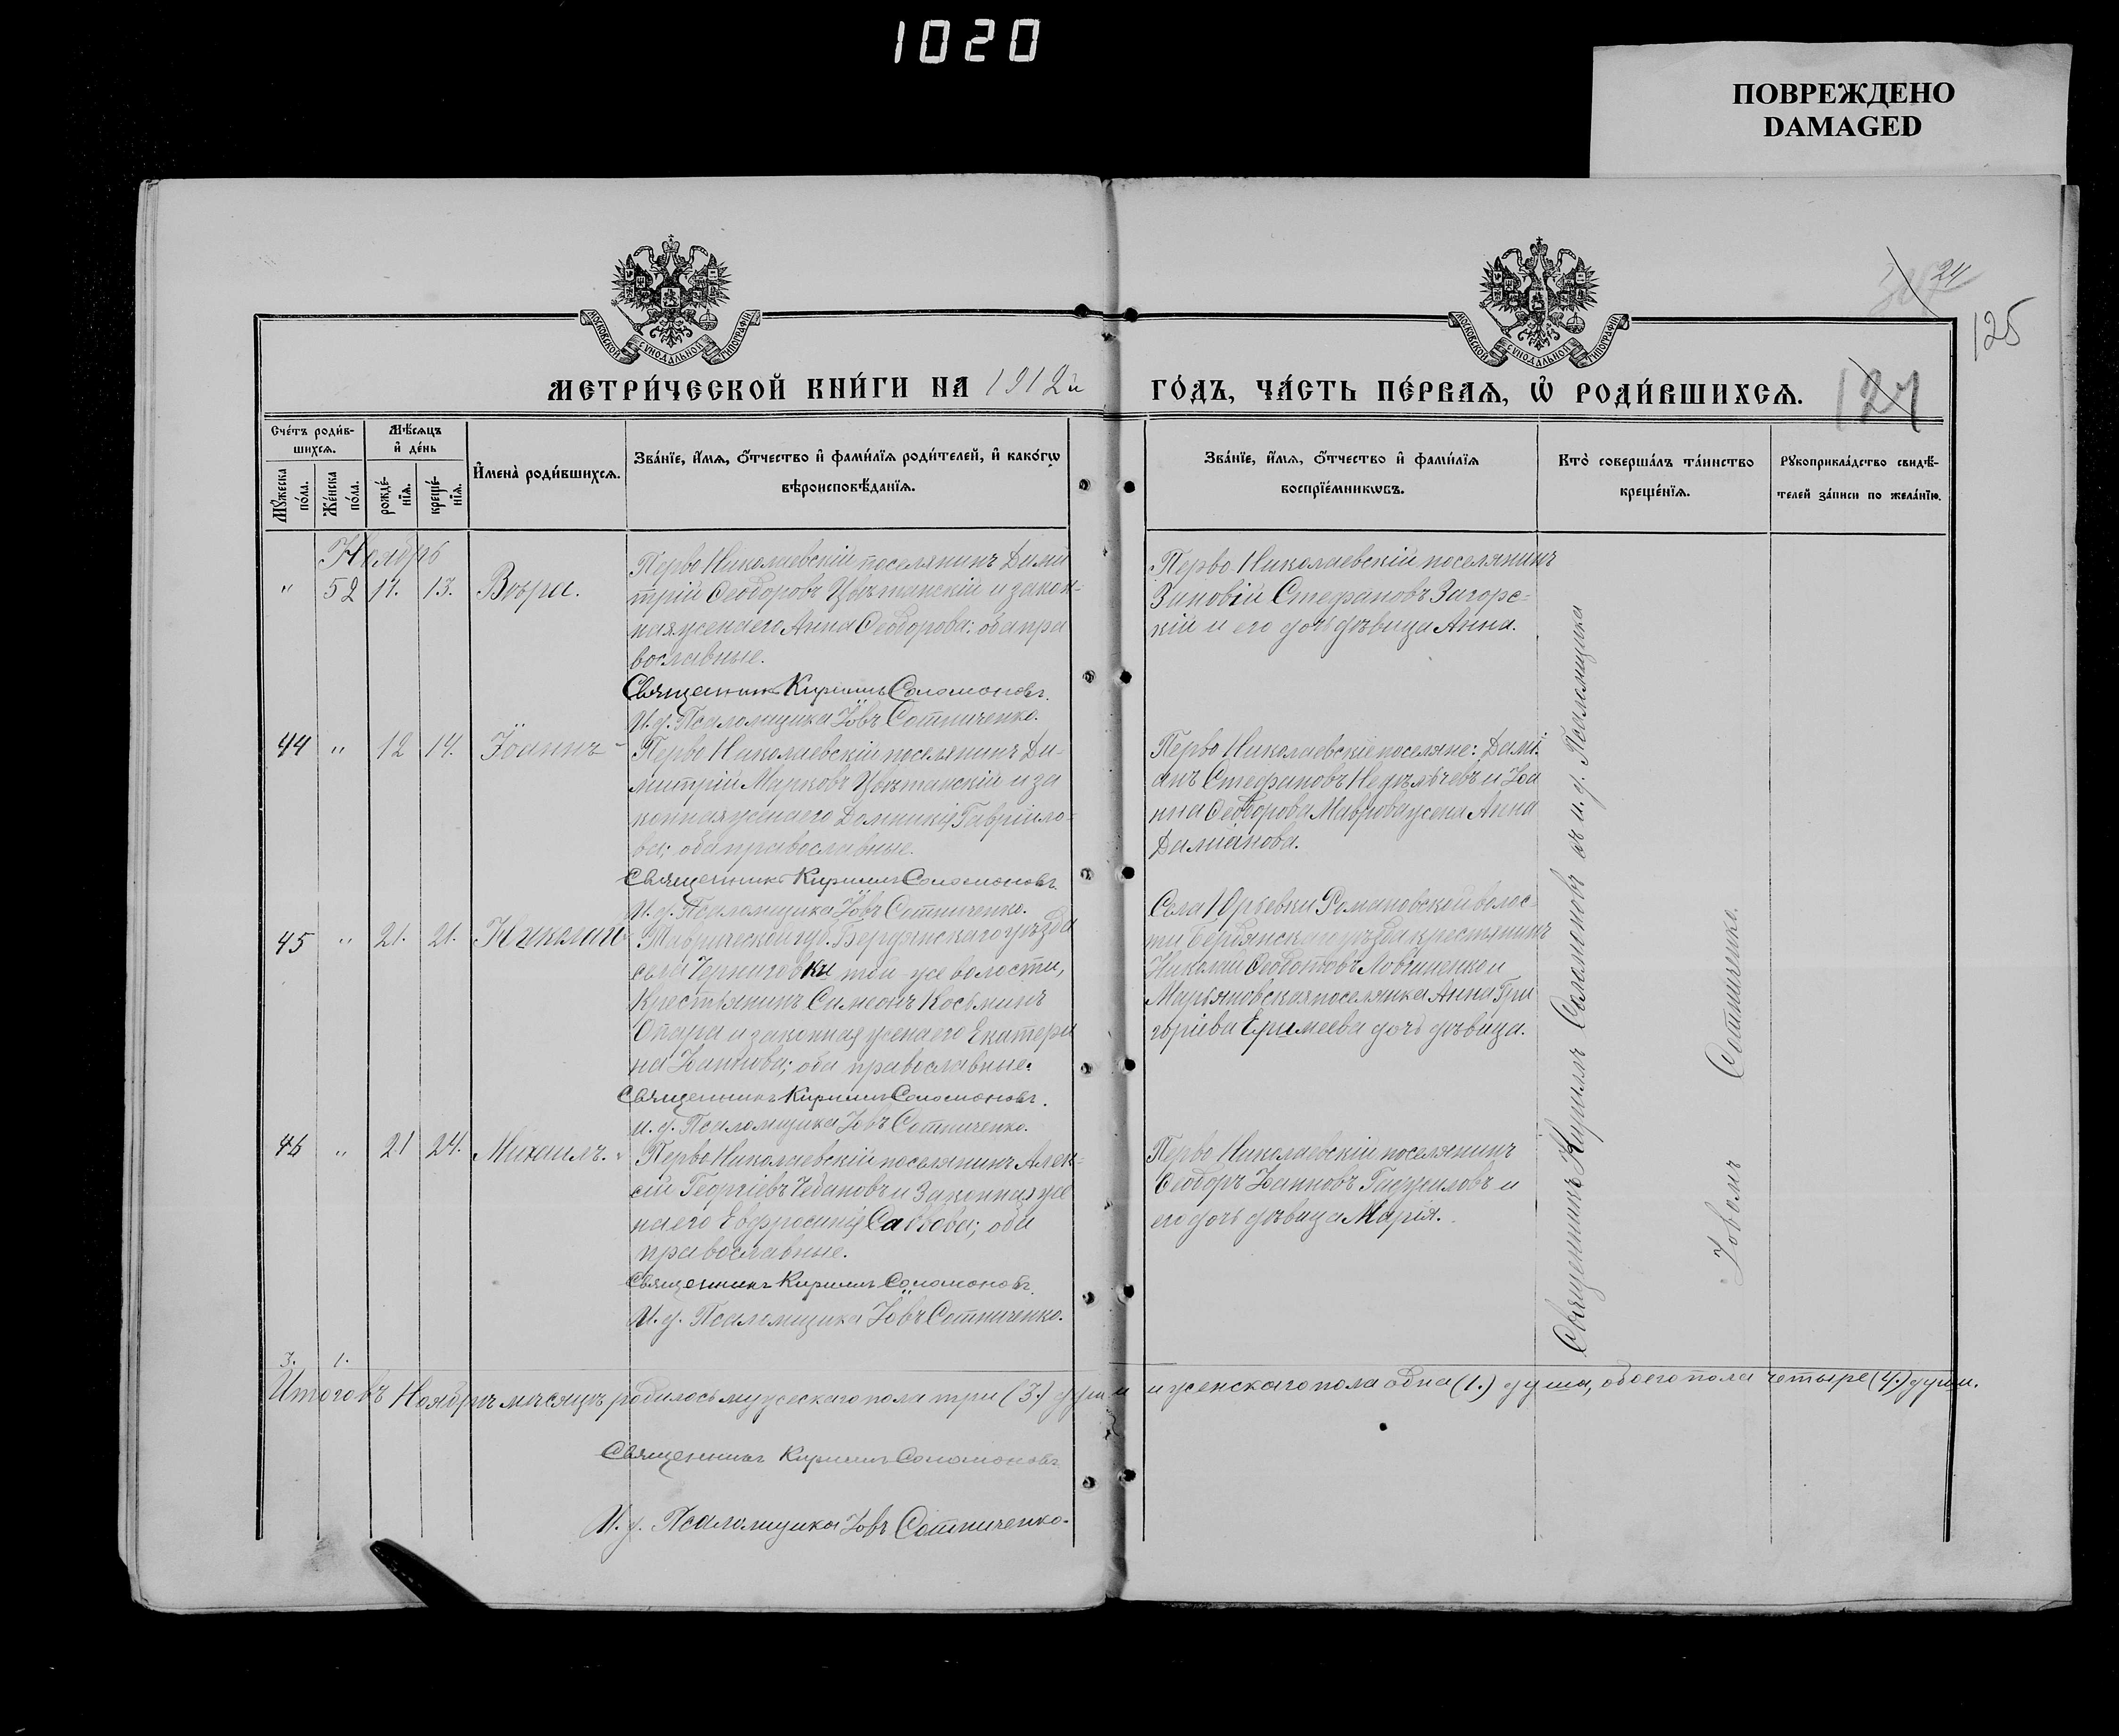 1020
ПОВРЕЖДЕНО
DAMAGED
24
125
МОСКОВСКОЙ СѴНОДАЛЬНОЙ ТИПОГРАФІИ
МОСКОВСКОЙ СѴНОДАЛЬНОЙ ТИПОГРАФІИ
МЕТРИ́ЧЕСКОЙ КНИ́ГИ НА 1912й
ГО́ДЪ, ЧА́СТЬ ПЕ́РВАѦ, Ѡ҆ РОДИ́ВШИХСѦ.
124
Сче́тъ роди́в-
шихсѧ.
Мꙋжеска по́ла.
Же́нска по́ла.
Мѣ́сѧцъ
и҆ де́нь
рожде́-
нїѧ.
креще́-
нїѧ.
И҆мена̀ роди́вшихсѧ.
Зва́нїе, и҆́мѧ, ѻ҆́тчество и҆ фами́лїѧ роди́телей, и҆ како́гѡ
вѣроисповѣ́данїѧ.
Зва́нїе, и҆́мѧ, ѻ҆́тчество и҆ фами́лїѧ
воспрїе́мникѡвъ.
Кто̀ соверша́лъ та́инство
креще́нїѧ.
Рꙋкоприкла́дство свидѣ́-
телей за́писи по жела́нїю.
Ноябрь
" 52 11. 13. Вѣра.
Перво Николаевскій поселянинъ Дими
трій Ѳеодоровъ Цвѣтанскій и закон-
ная жена его Анна Ѳеодорова: оба пра
вославные.
Священникъ Кириллъ Соломоновъ.
И. д. Псаломщика Іовъ Сотниченко.
Перво Николаевскій поселянинъ
Зиновій Стефановъ Загорс-
кій и его дочь дѣвица Анна.
44 " 12 14. Іоаннъ
Перво Николаевскій поселянинъ Ди-
митрій Марковъ Цвѣтанскій и за
конная жена его Домникія Гавріило-
ва; оба православные.
Священникъ Кириллъ Соломоновъ.
И. д. Псаломщика Іовъ Сотниченко.
Перво Николаевскіе поселяне: Дамі-
анъ Стефановъ Недѣлчевъ и Іоа
нна Ѳеодорова Маврова жена Анна
Даміанова.
45 " 21. 21. Николай
Таврической губ. Бердянскаго уѣзда
села Черниговки той-же волости,
Крестьянинъ Симеонъ Косьминъ
Опара и законная жена его Екатери
на Іаннова; оба православные.
Священникъ Кириллъ Соломоновъ.
и. д. Псаломщика Іовъ Сотниченко.
Села Юрьевки Романовской волос-
ти Бердянскаго уѣзда крестьянинъ
Николай Ѳеодотовъ и
Марьяновская поселянка Анна Гри
горіева Еримеева дочь дѣвица.
46 " 21 24. Михаилъ.
Перво Николаевскій поселянинъ Алек-
сій Георгіевъ Чебановъ и Законная же
на его Евфросинія Саввова; оба
православные.
Священникъ Кириллъ Соломоновъ.
И. д. Псаломщика Іовъ Сотниченко.
Перво Николаевскій поселянинъ
Ѳеодоръ Іанновъ и
его дочь дѣвица Марія.
Священникъ Кириллъ Соломоновъ съ и. д. Псаломщика
Іовомъ Сотниченко.
3. 1.
Итого въ Ноябрѣ мѣсяцѣ родилось мужескаго пола три (3.) души и женскаго пола одна (1.) душа, обоего пола четыре (4.) души.
Священникъ Кириллъ Соломоновъ
И. д. Псаломщика Іовъ Сотниченко.